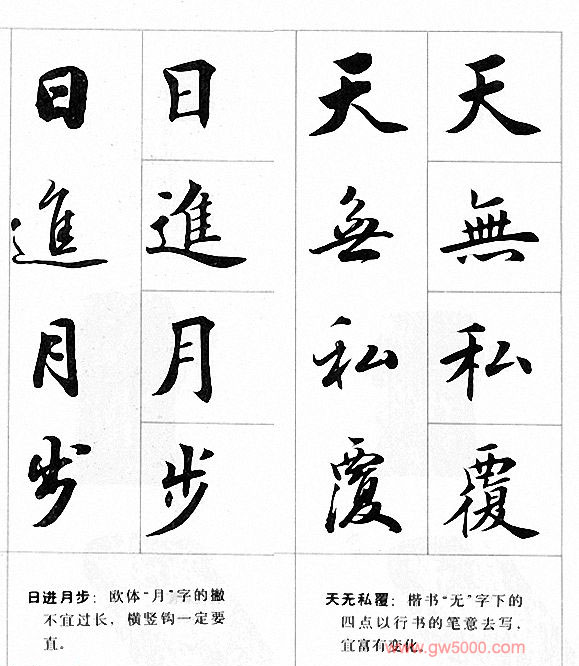 天無私覆
天無私覆
日進月步
日進月步
日进月步：欧体“月”字的撇
不宜过长，横竖钩一定要
直。
天无私覆：楷书“无”字下的
四点以行书的笔意去写，
宜富有变化。
www.gw5000.com